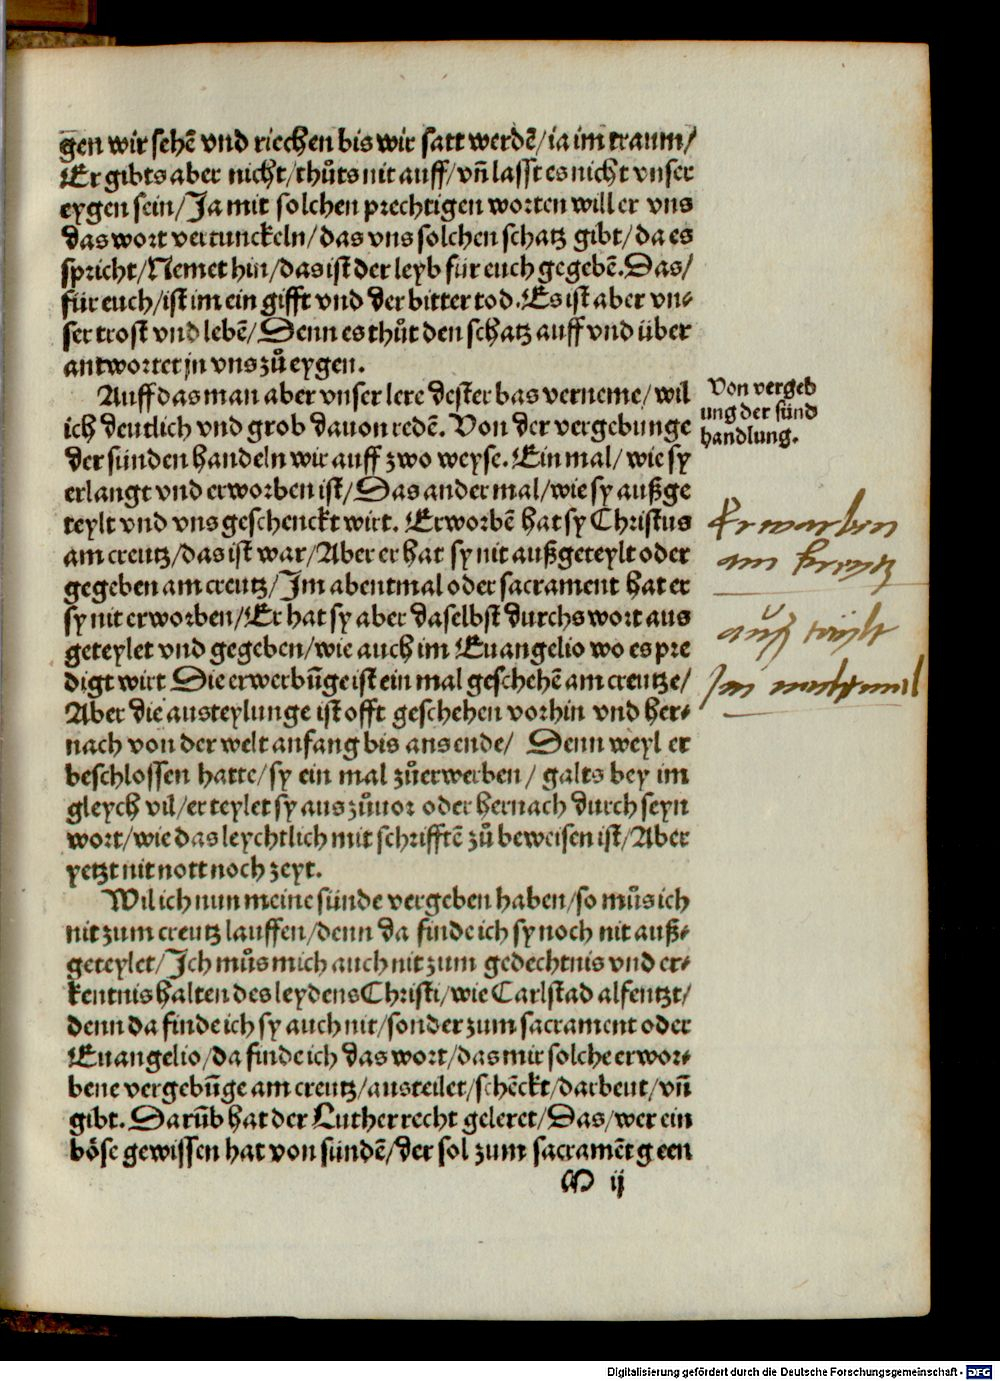 gen wir sehē vnd riechen bis wir satt werdē/ia im traum/
Er gibts aber nicht/thůts nit auff/vñ lasst es nicht vnser
eygen sein/Ja mit solchen prechtigen worten will er vns
das wort vertunckeln/das vns solchen schatz gibt/da es
spricht/Nemet hin/das ist der leyb für euch gegebē.Das/
für euch/ist im ein gifft vnd der bitter tod.Es ist aber vn⸗
ser trost vnd lebē/Denn es thůt den schatz auff vnd über
antwortet jn vns zů eygen.
Auff das man aber vnser lere dester bas verneme/wil
ich deutlich vnd grob dauon redē. Von der vergebunge
der sünden handeln wir auff zwo weyse. Ein mal/wie sy
erlangt vnd erworben ist/Das ander mal/wie sy außge
teylt vnd vns geschenckt wirt. Erworbē hat sy Christus
am creutz/das ist war/Aber er hat sy nit außgeteylt oder
gegeben am creutz/Im abentmal oder sacrament hat er
sy nit erworben/Er hat sy aber daselbst durchs wort aus
geteylet vnd gegeben/wie auch im Euangelio wo es pre
digt wirt Die erwerbũge ist ein mal geschehē am creutze/
Aber die austeylunge ist offt geschehen vorhin vnd her⸗
nach von der welt anfang bis ans ende/ Denn weyl er
beschlossen hatte/sy ein mal zůerwerben/ galts bey im
gleych vil/er teylet sy aus zůuor oder hernach durch seyn
wort/wie das leychtlich mit schrifftē zů beweisen ist/Aber
yetzt nit nott noch zeyt.
Wil ich nun meine sünde vergeben haben/so můs ich
nit zum creutz lauffen/denn da finde ich sy noch nit auß⸗
geteylet/Ich můs mich auch nit zum gedechtnis vnd er⸗
kentnis halten des leydens Christi/wie Carlstad alfentzt/
denn da finde ich sy auch nit/sonder zum sacrament oder
Euangelio/da finde ich das wort/das mir solche erwor⸗
bene vergebũge am creutz/austeilet/schēckt/darbeut/vñ
gibt. Darũb hat der Luther recht geleret/Das/wer ein
böse gewissen hat von sündē/der sol zum sacramēt geen
M ij
Von vergeb
ung der sünd
handlung.
Erworben
am kreytz
auß teylt
Im nachtmal
Digitalisierung gefördert durch die Deutsche Forschungsgemeinschaft - DFG